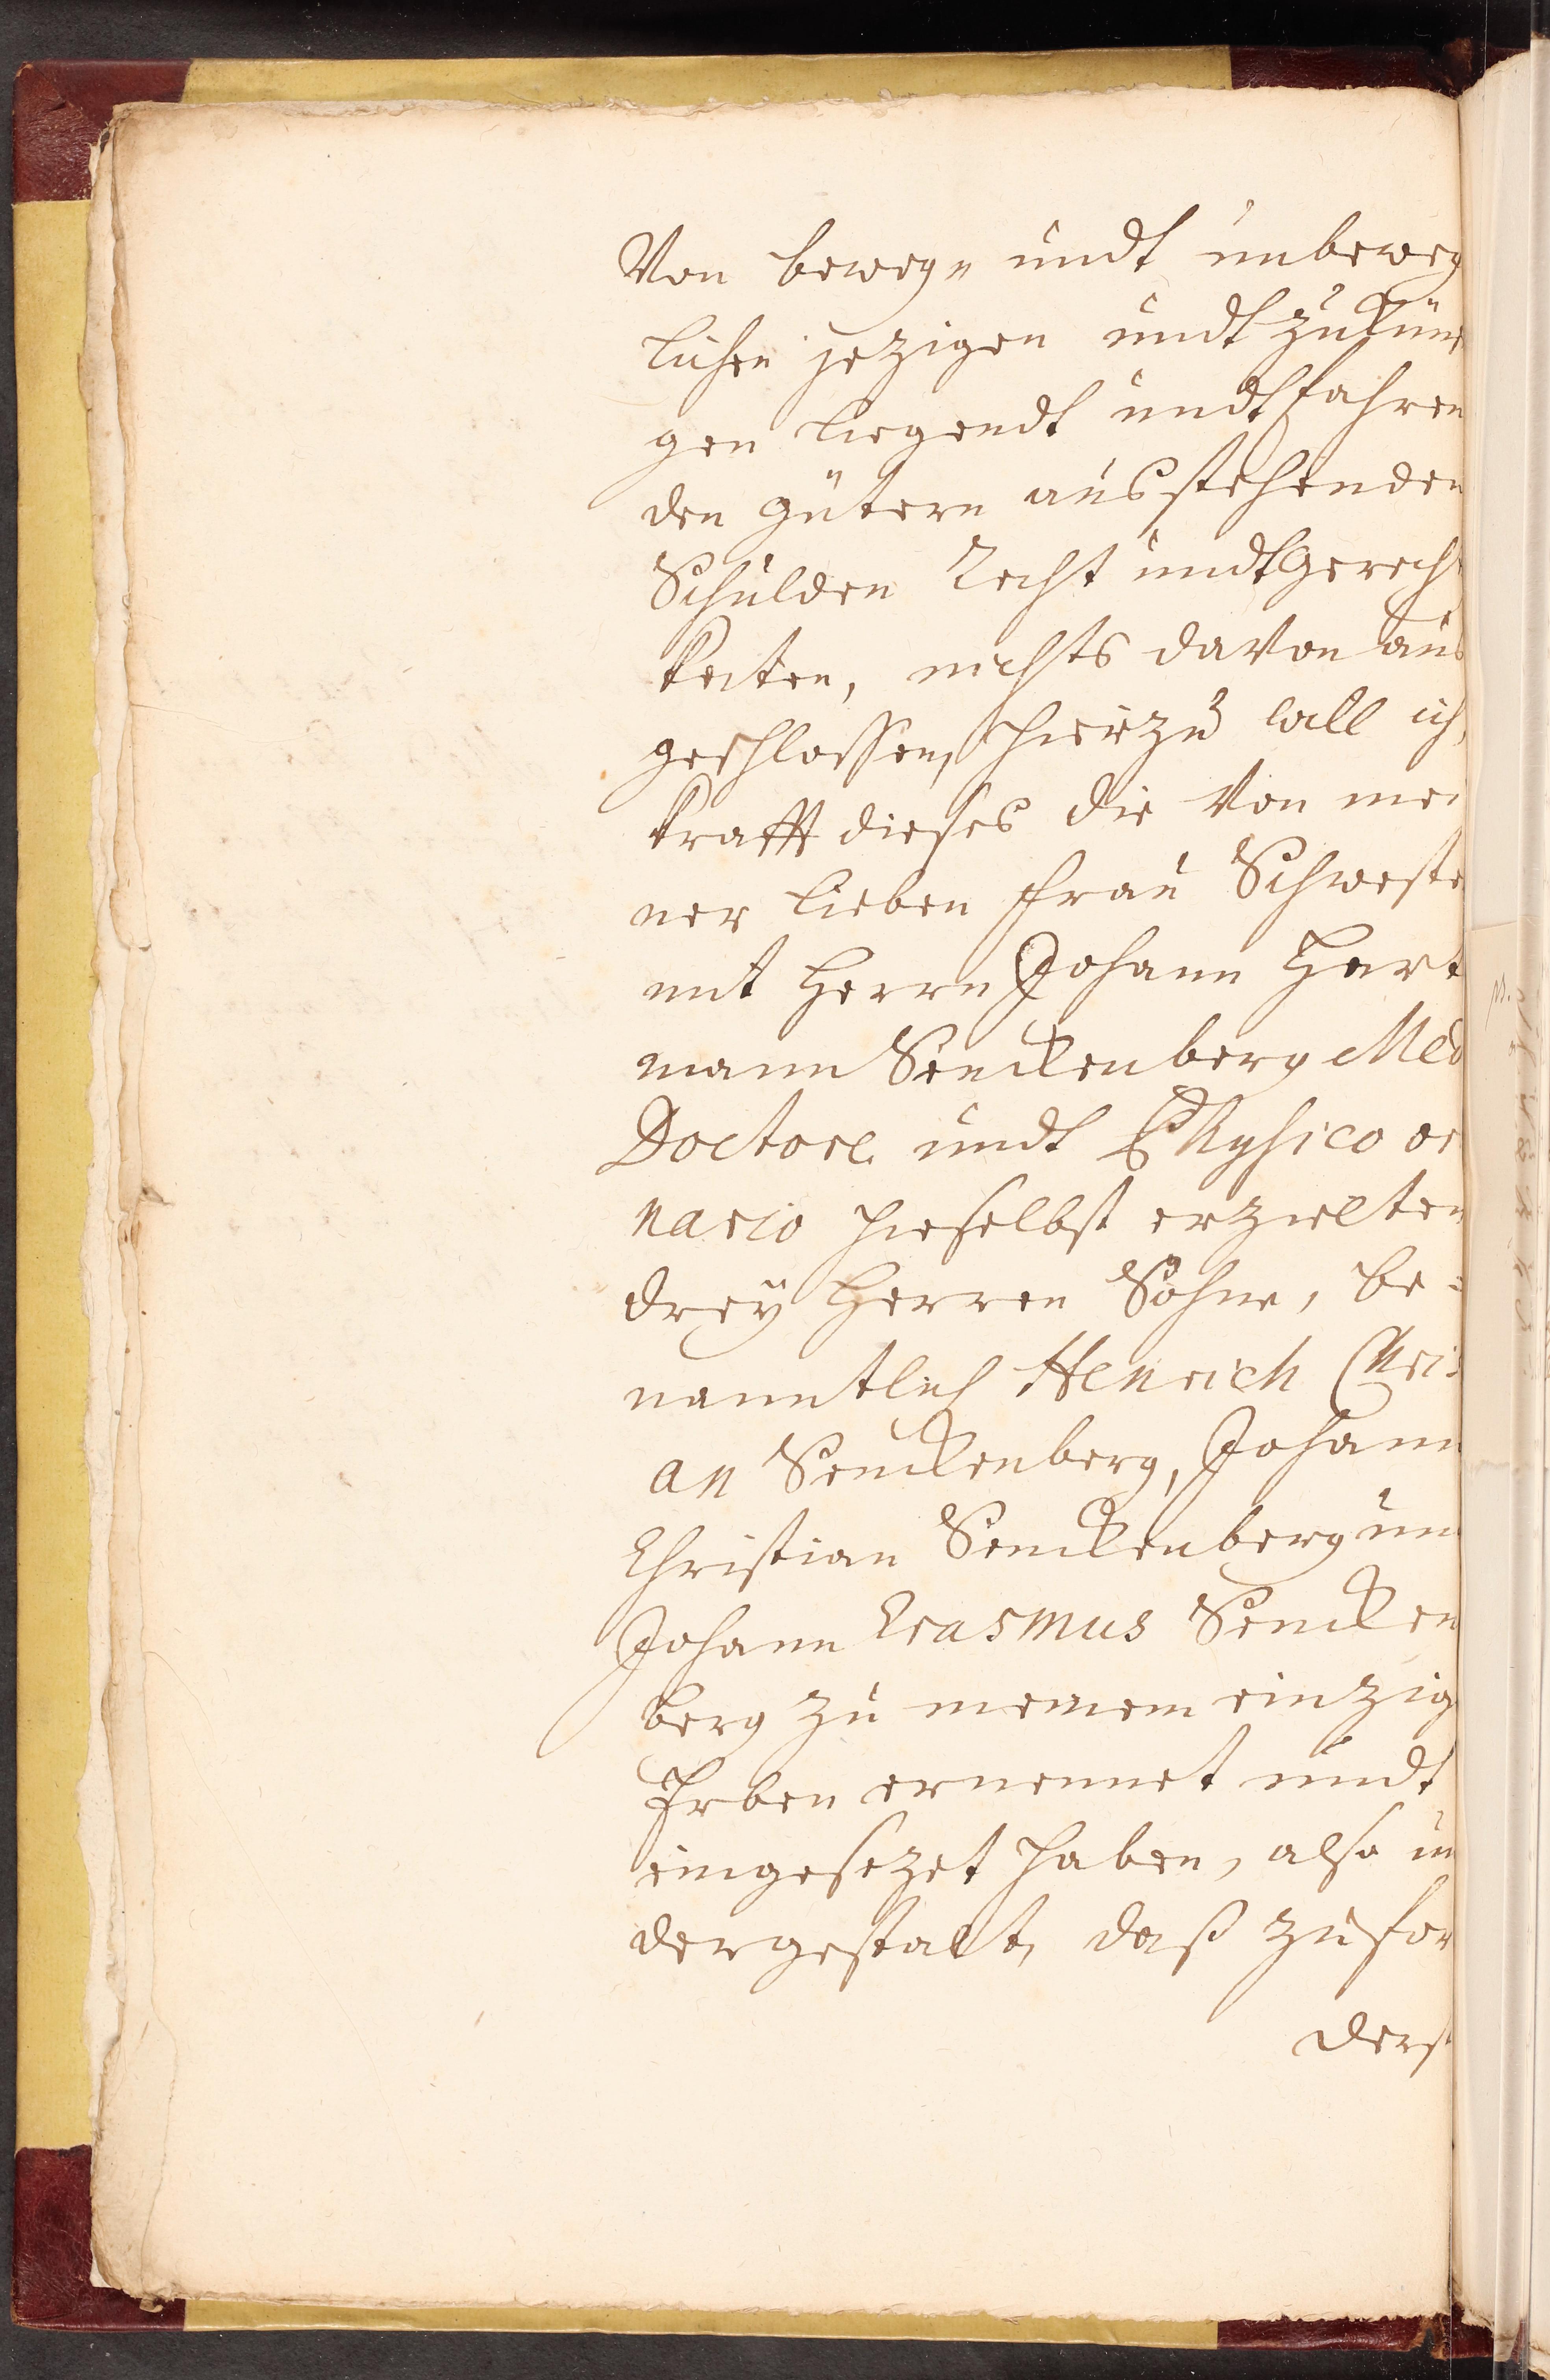 Von beweg= undt unbeweg
lichen jezigen undt zukünf
gen liegendt undt fahren
den gütern ausstehenden
Schulden Recht undt Gerech
keiten, nichts davon aus
geschlossen, hierzu will ich,
krafft dieses die von mei
ner lieben Frau Schweste
mit Herrn Johann Hart
mann Senckenberg Med
Doctore undt Physico or
nario hieselbst erzielten
drey Herren Söhne, be=
nanntlich Henrich Chris
an Senckenberg, Johann
Christian Senckenberg un
Johann Erasmus Sencken
berg zu meinem einzig
Erben ernennet undt
eingesezet haben, also un
dergestalt, daß zufor
derst